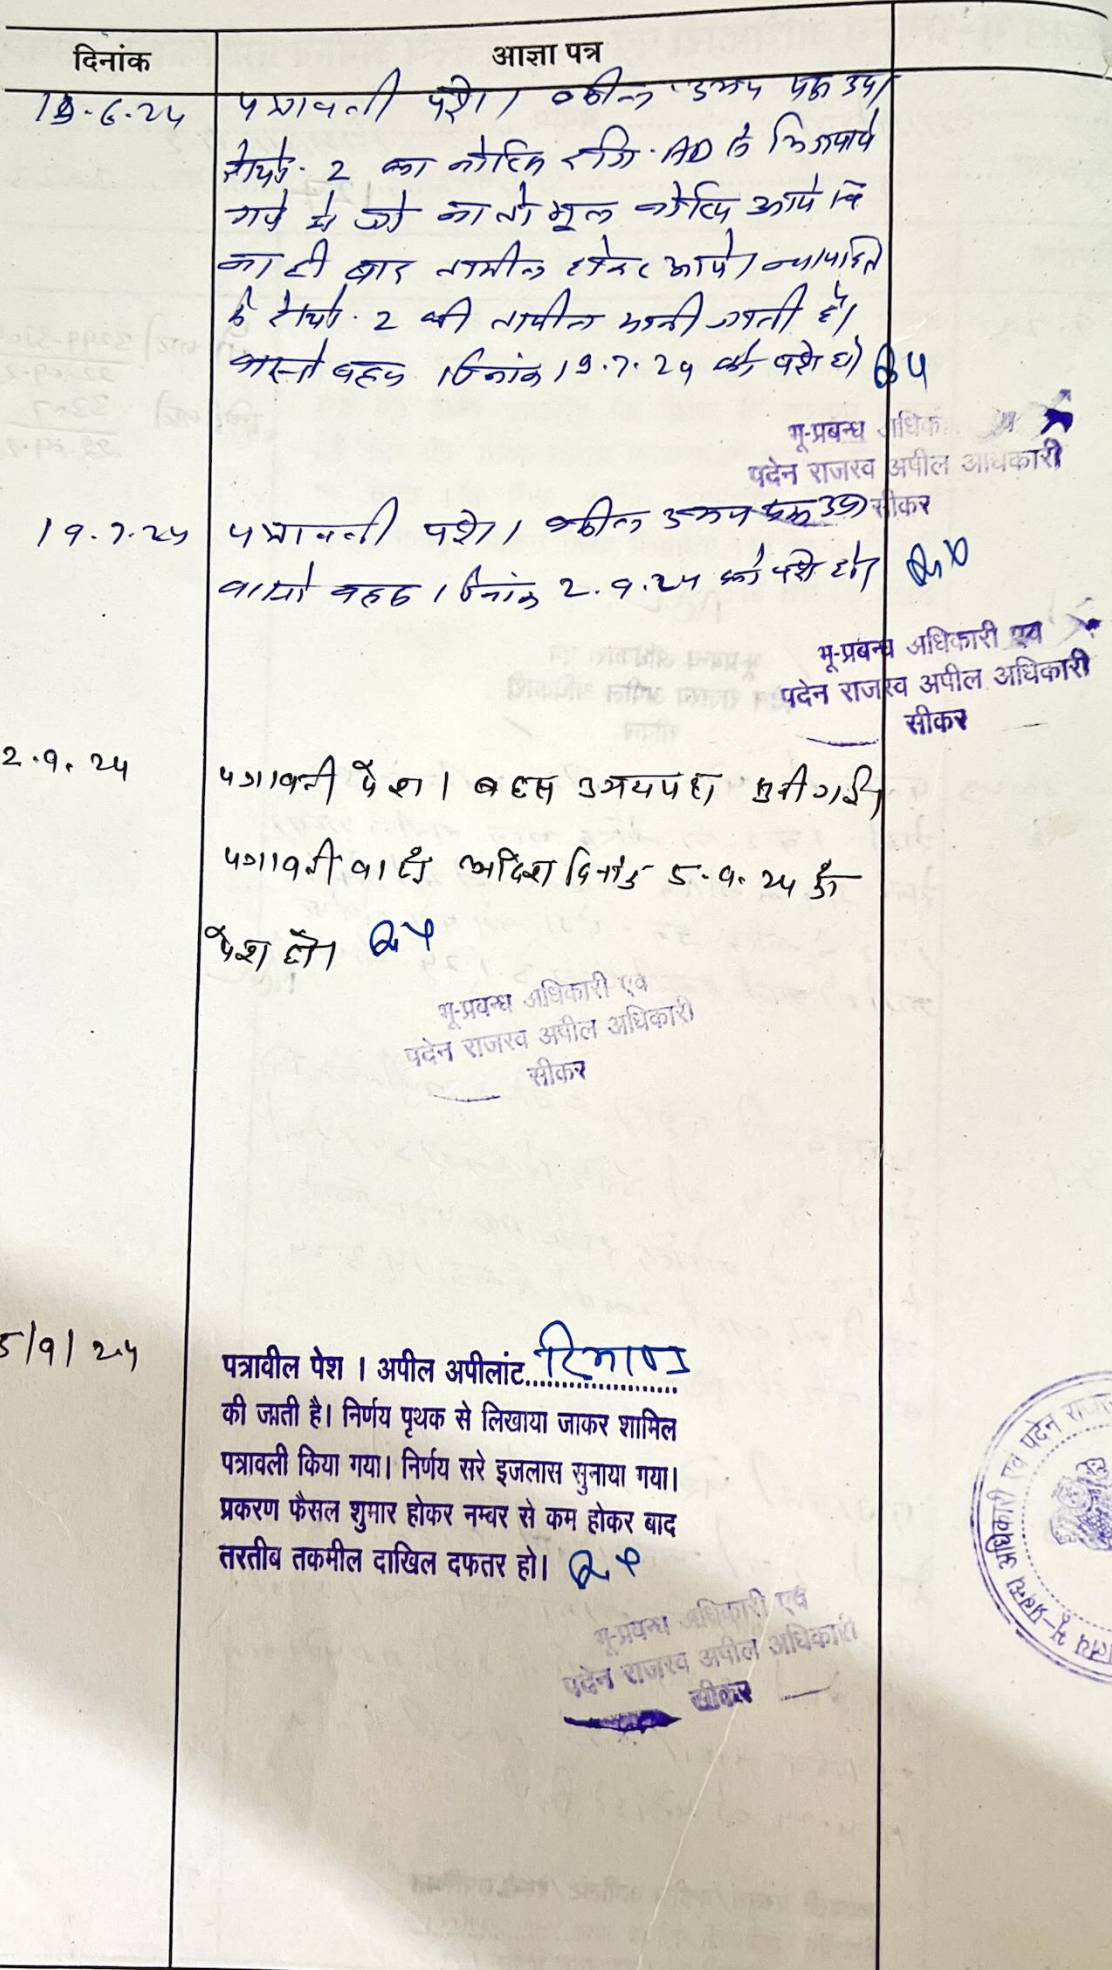 दिनांक
आज्ञा पत्र
19-6-24
पत्रावली पेश। वकील उभय पक्ष उप।
रेस्पो. 2 का नोटिस रजि. AD से भिजवाये
गये थे जो ना तो मूल नोटिस आये
ना ही बाद तामील होकर आये।
रेस्पो. 2 की तामील मानी जाती है।
वास्ते बहस दिनांक 19.7.24 को पेश हो।
भू-प्रबन्ध अधिक
पदेन राजस्व अपील अधिकारी
सीकर
19.7.24
पत्रावली पेश। वकील उभय पक्ष उप।
वास्ते बहस दिनांक 2.9.24 को पेश हो।
भू-प्रबन्ध अधिकारी एव
पदेन राजस्व अपील अधिकारी
सीकर
2.9.24
पत्रावली पेश। बहस उभयपक्ष सुनी गई।
पत्रावली वास्ते आदेश दिनांक 5.9.24 को
पेश हो।
भू-प्रबन्ध अधिकारी एव
पदेन राजस्व अपील अधिकारी
सीकर
5/9/24
पत्रावील पेश । अपील अपीलांट..रिमाण्ड
की जाती है। निर्णय पृथक से लिखाया जाकर शामिल
पत्रावली किया गया। निर्णय सरे इजलास सुनाया गया।
प्रकरण फैसल शुमार होकर नम्बर से कम होकर बाद
तरतीब तकमील दाखिल दफतर हो।
भू-प्रबन्ध अधिकारी एव
पदेन राजस्व अपील अधिकारी
सीकर
भू-प्रबन्ध अधिकारी एवं पदेन राजस्